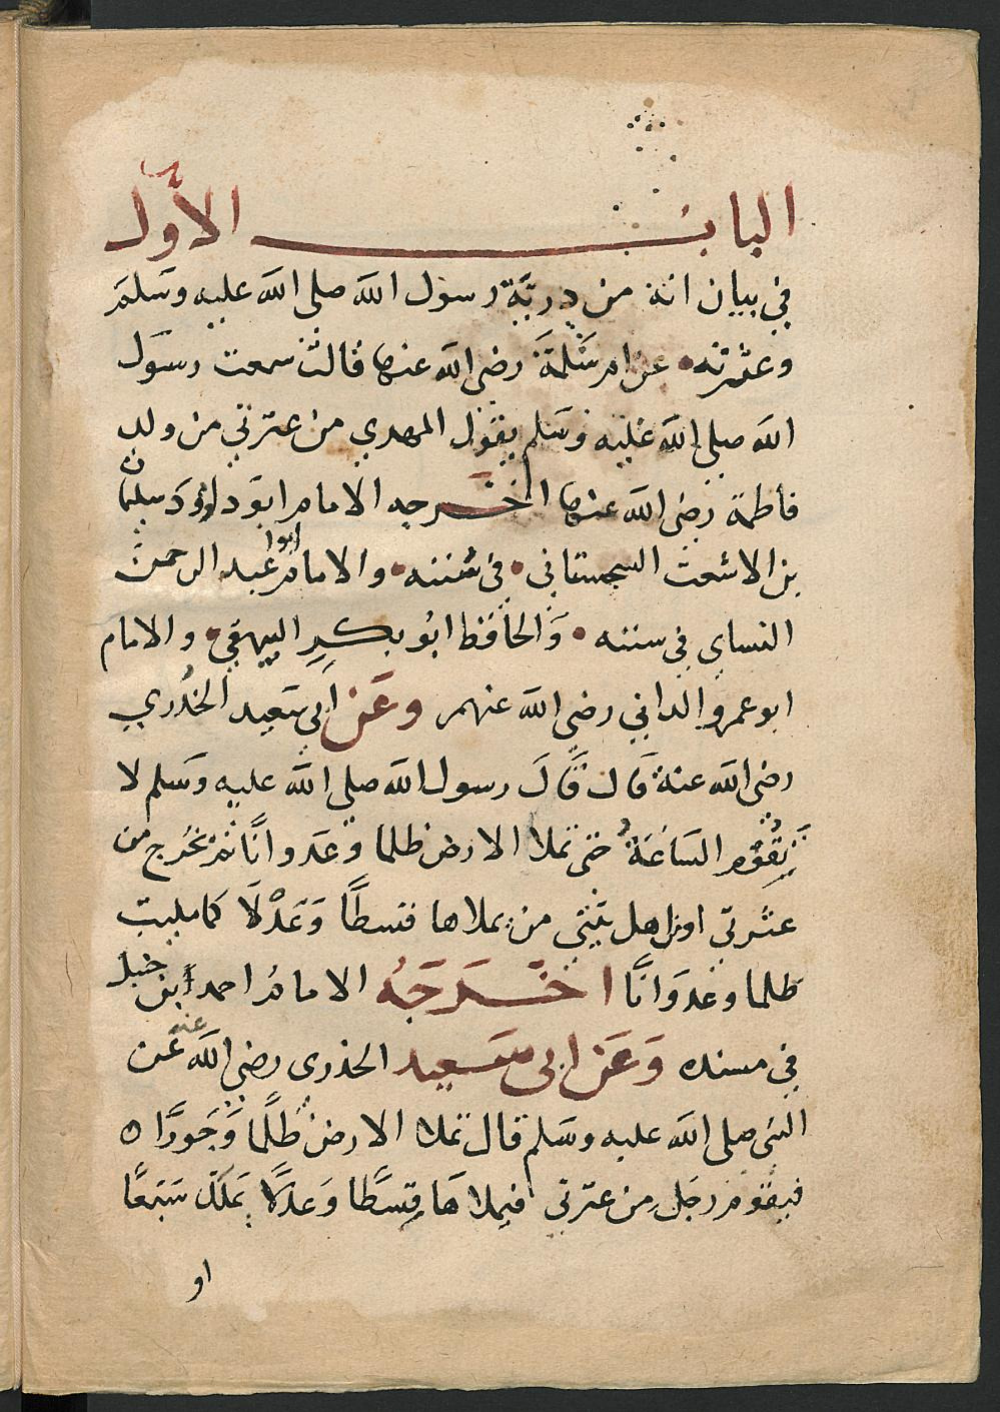 الباب الأول
في بيان انه من دريّة رسول الله صلى الله عليه وسَلمَ
وعثرته • عن ام سَلمَةَ رضى الله عنها قالت سمعت رسول
الله صلى الله عليه وسَلم يقول المهدي من عترتي من ولد
فاطمة رضى الله عنها اخرجه الامام ابو داوود سليمان
بن الاشعث السجستاني • في سُننه • والامام ابوا عبد الرحمن
النساي في سننه • وَالحافظ ابُو بكرِ البيهقي • والامام
ابو عمرو الداني رضى الله عنهم وعَن ابى سَعيد الخُدري
رضى الله عنهُ قَال قَالَ رسول الله صلى الله عليه وسَلم لا
تقُومُ السَاعَةُ حتى تملا الارض ظلما وعَدوانًا ثمّ يخرج من
عثرتي اومن اهل بَيْتي من يملاها قسطًا وَعَدْلًا كما مليت
ظلما وعدوَانًا اخرَجَهُ الامامُ احمد ابن حنبل
في مسنده وَعَن ابى سَعيد الخدرى رضى الله عنه عَن
النبى صلى الله عليه وسَلم قال تملا الارض ظُلمًا وَجَورًا ه
فيقومُ رجَل من عترتي فيملاهَا قِسطًا وَعدلًا يَملك سَبعًا
او